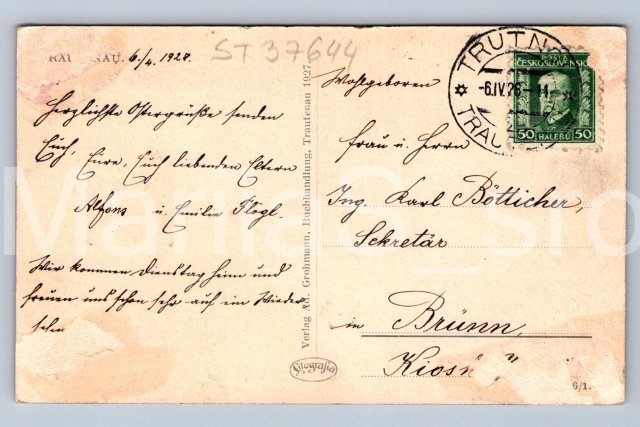 RAUTENAU. 6./4. 1928.
ST 37644
Herzlichste Ostergrüße senden
Euch, Eure, Euch liebenden Eltern
Alfons u. Emilie Flögl.
Wir kommen Dienstag hinn und
freuen uns schon sehr auf ein Wieder-
sehen
Verlag Ad. Grohmann, Buchhandlung, Trautenau 1927.
Grografia
TRUTNO
-6.IV.28-11
TRAU
ČESKOSLOVENSK
50 HALÉŘŮ 50
Wohlgeboren
Frau u. Herrn
Ing. Karl Bötticher,
Sekretär
in Brünn,
Kiosk "
6/1.